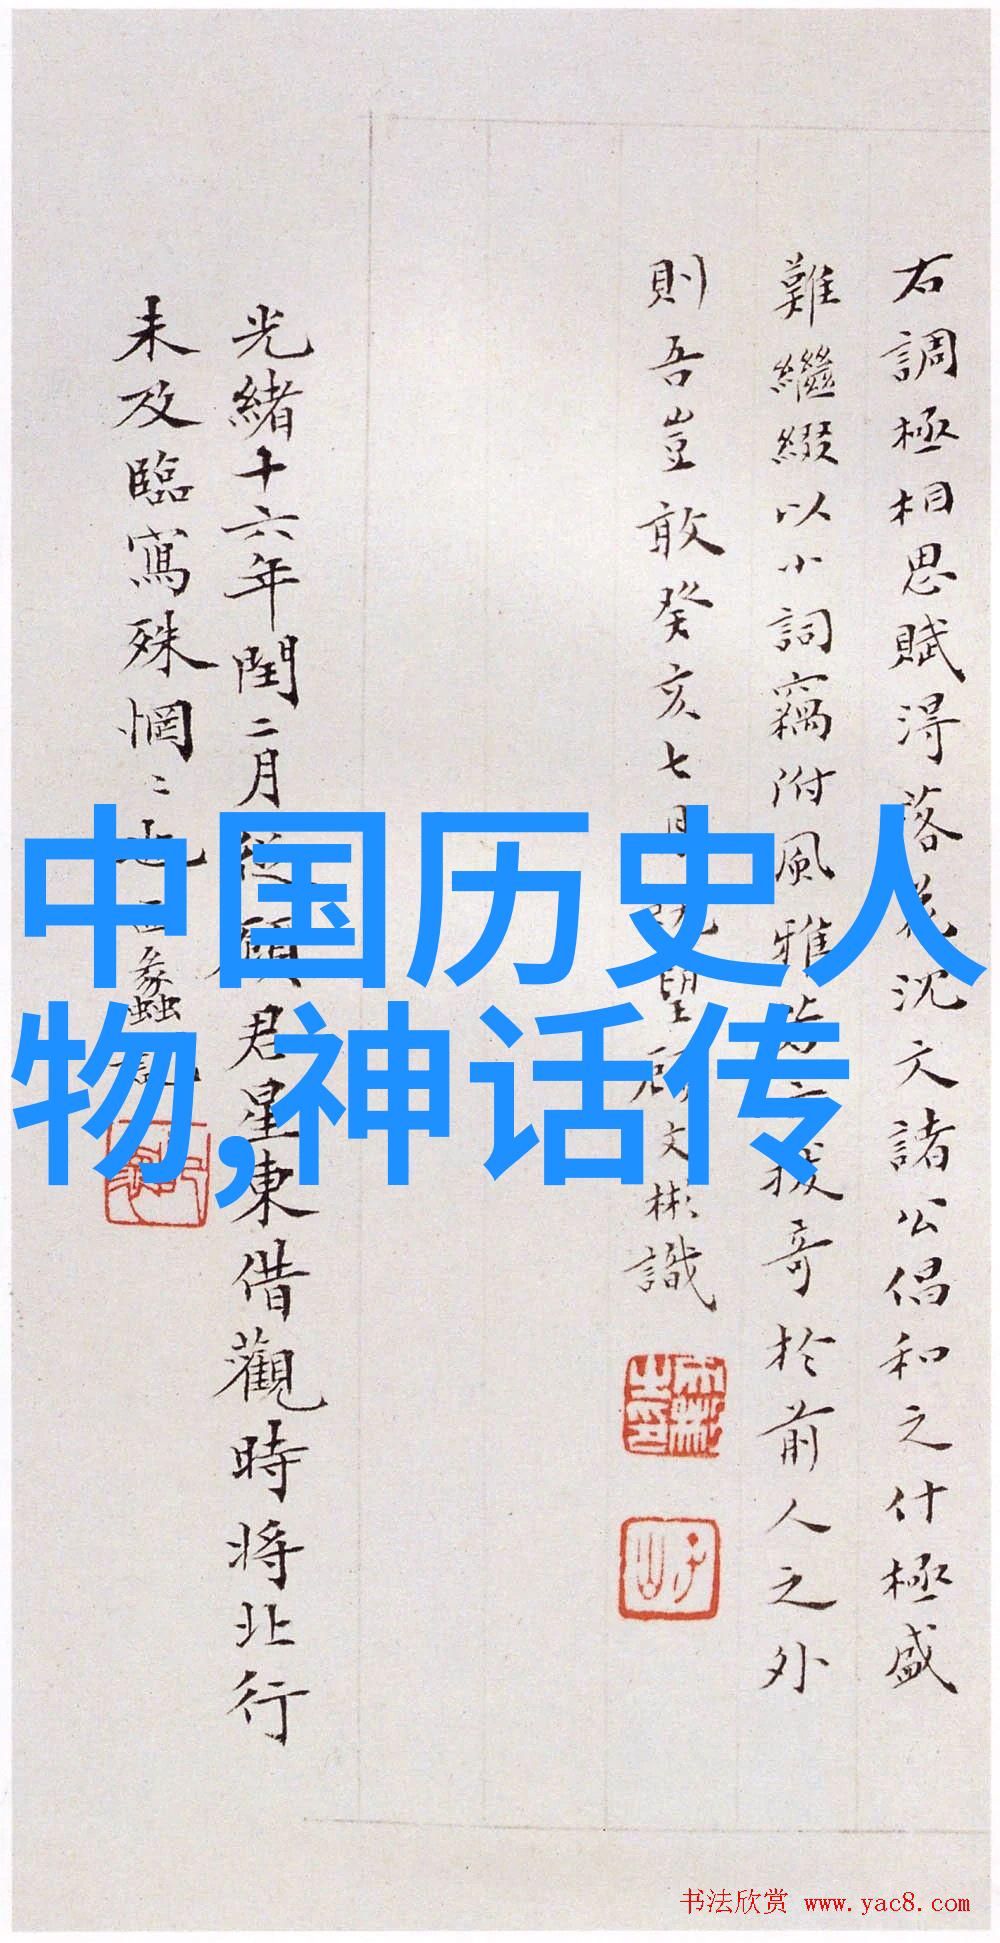 右調極相思賦得落花沈文諸公倡和之什極盛
難繼綴以小詞竊附風雅
拔奇於前人之外
則吾豈敢癸亥七月既望顧文彬識
光緒十六年閏二月從顧君星東借觀時將北行
未及臨寫殊惘〻也
彝記
中国历史人
物,神话传
书法欣赏 www.yac8.com